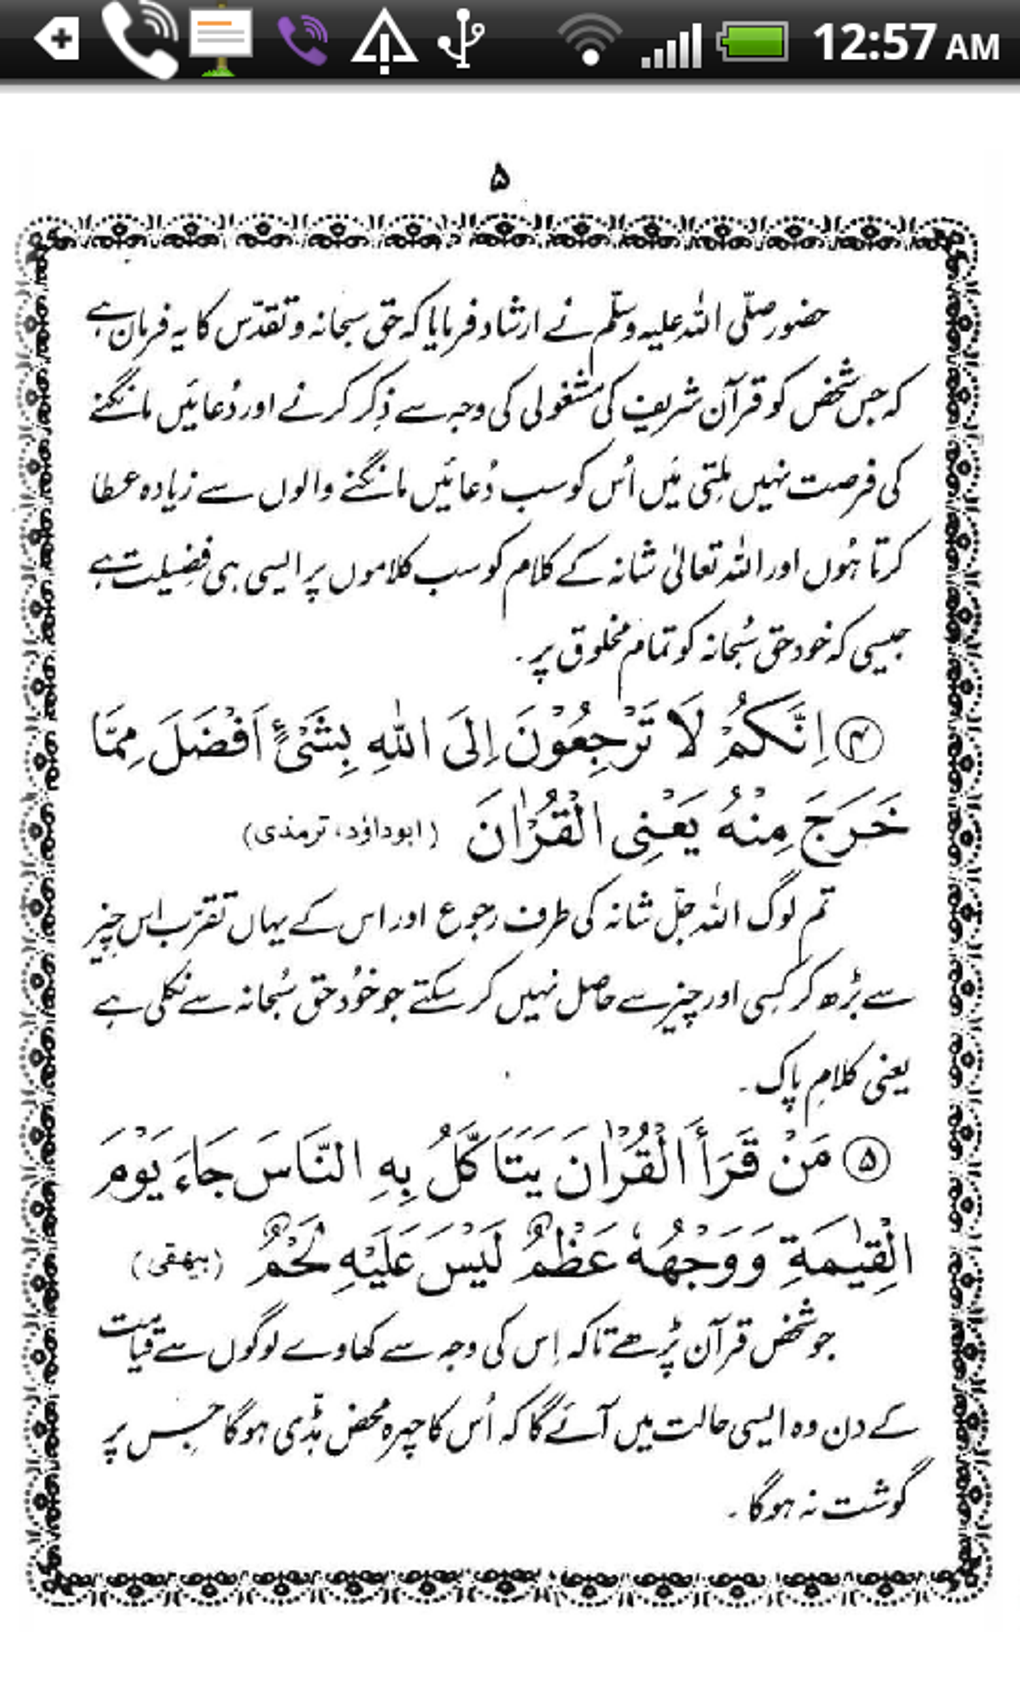 12:57 AM
۵
حضور صلّی اللہ علیہ وسلّم نے ارشاد فرمایا کہ حق سبحانہ وتقدّس کا یہ فرمان ہے
کہ جس شخص کو قرآن شریف کی مشغولی کی وجہ سے ذِکر کرنے اور دُعائیں مانگنے
کی فرصت نہیں ملتی میَں اُس کو سب دُعائیں مانگنے والوں سے زیادہ عطا
کرتا ہُوں اور اللہ تعالیٰ شانہ کے کلام کو سب کلاموں پر ایسی ہی فضِیلت ہے
جیسی کہ خود حق سُبحانہ کو تمام مخلوق پر ۔
۴ اِنَّکُمْ لَا تَرْجِعُوْنَ اِلَی اللّٰهِ بِشَیْءٍ اَفْضَلَ مِمَّا
خَرَجَ مِنْهُ یَعْنِی الْقُرْاٰنَ (ابوداؤد، ترمذی)
تم لوگ اللہ جلّ شانہ کی طرف رجوع اور اس کے یہاں تقرّب اس چیز
سے بڑھ کر کسِی اور چیز سے حاصل نہیں کر سکتے جو خُود حق سُبحانہ سے نکلی ہے
یعنی کلامِ پاک ۔
۵ مَنْ قَرَأَ الْقُرْاٰنَ یَتَاَکَّلُ بِهِ النَّاسَ جَاءَ یَوْمَ
الْقِیٰمَةِ وَوَجْهُهٗ عَظْمٌ لَیْسَ عَلَیْهِ لَحْمٌ (بیهقی)
جو شخص قرآن پڑھے تاکہ اِس کی وجہ سے کھاوے لوگوں سے قیامت
کے دن وہ ایسی حالت میں آئے گا کہ اُس کا چہرہ محض ہڈّی ہوگا جِس پر
گوشت نہ ہوگا ۔